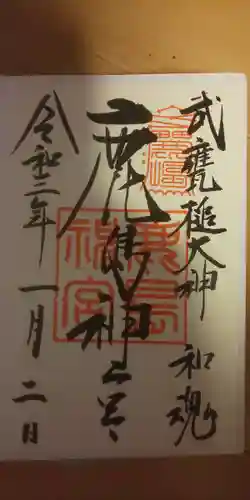 武甕槌大神 和魂
鹿島神宮
令和三年 一月 二日
鹿島神宮